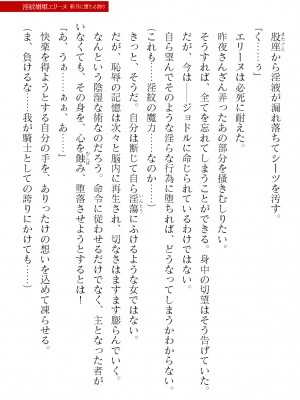 淫紋姫騎エリーヌ 新月に堕ちる誇り
股座から淫液が漏れ落ちてシーツを汚す。
「く……ぅ」
エリーヌは必死に耐えた。
昨夜さんざん弄ったあの部分を掻きむしりたい。
そうすれば、全てを忘れてしまうことができる。身中の切望はそう告げていた。
だが、今は——ジョドルに命じられているわけではない。
自ら望んでそのような淫らな行為に堕ちれば、どうなってしまうかわからない。
(これも……淫紋の魔力……なのか……)
きっと、そうだ。自分は断じて自ら淫蕩にふけるような女ではない。
だが、恥辱の記憶は次々と脳内に再生され、切なさはますます膨らんでいく。
なんという陰湿な術なのだろう。命令に従わせるだけでなく、主となった者が
いなくても、その身を、心を蝕み、堕落させようとするとは!
「あ、うぁ……ぁぁ、あ……」
快楽を得ようとする自分の手を、ありったけの想いを込めて凍らせる。
(ま、負けるな……我が騎士としての誇りにかけても……)